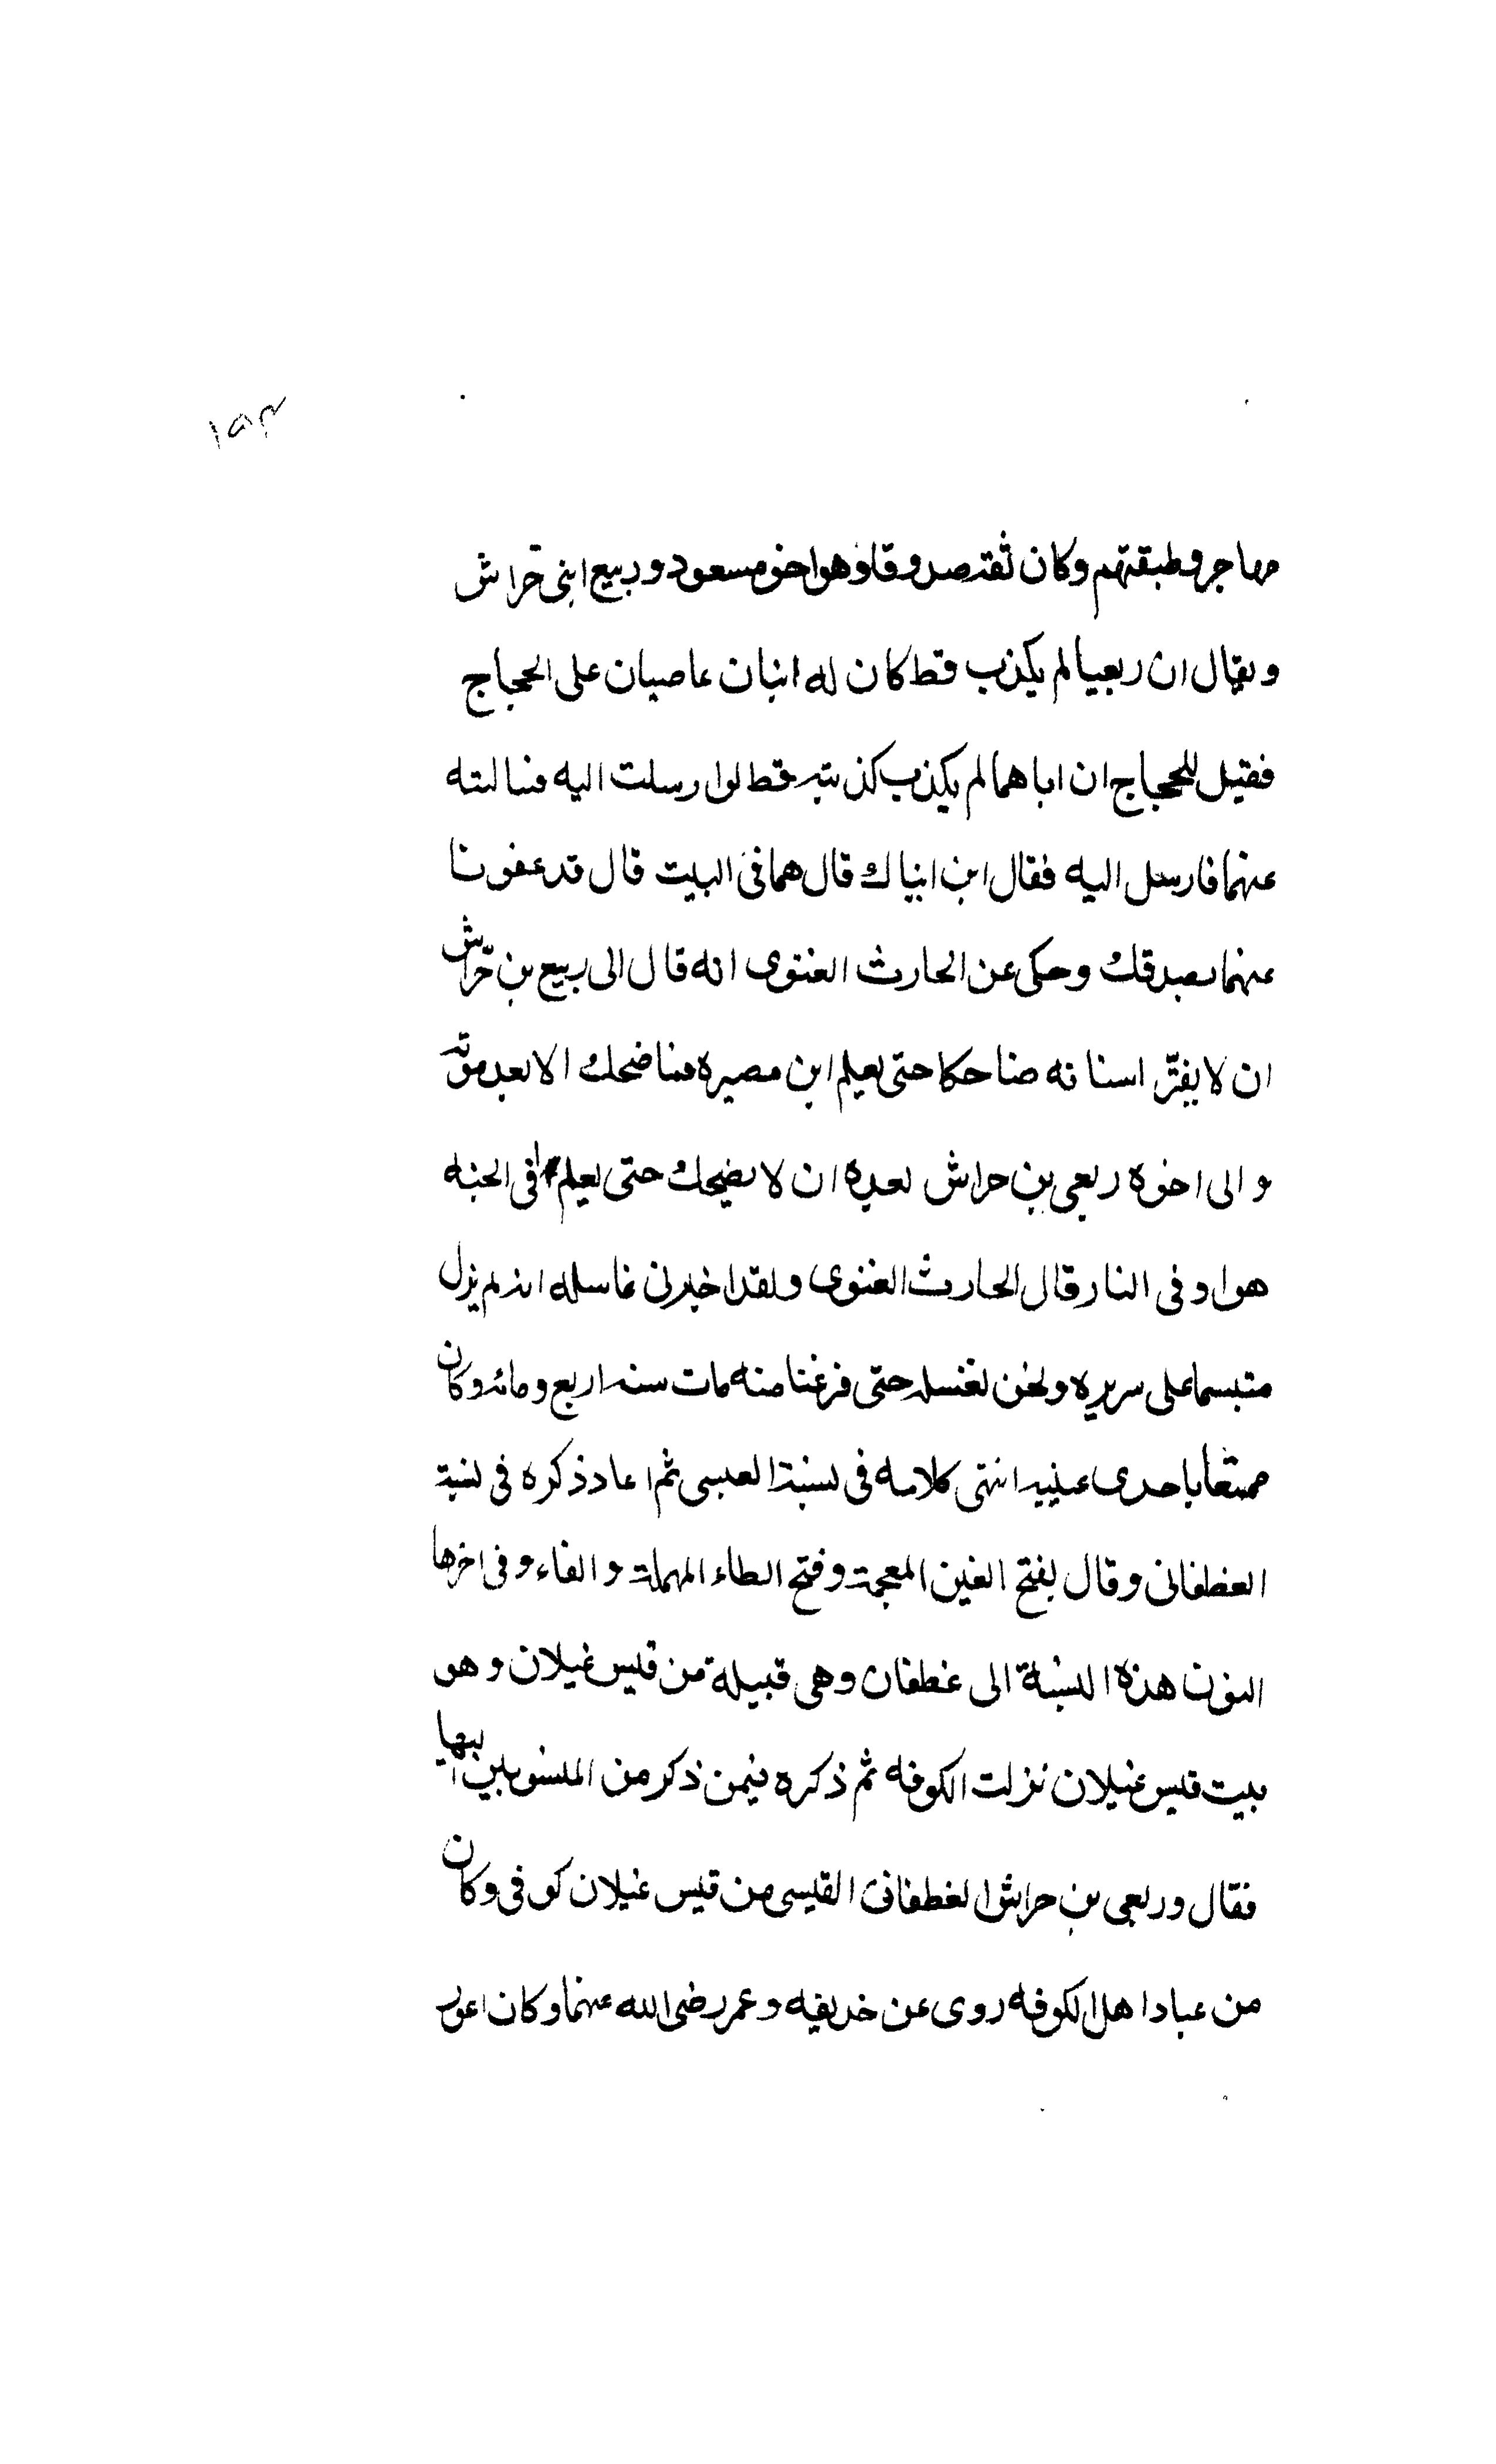 مهاجر وطبقتهم وكان ثقة صدوقا وهو اخو مسعود وربيع ابنى حراش
ويقال ان ربعيا لم يكذب قط كان له ابنان عاصيان على الحجاج
فقيل للحجاج ان اباهما لم يكذب كذبته قط لو ارسلت اليه فسالته
عنهما فارسل اليه فقال اين ابناك قال هما فى البيت قال قد عفونا
عنهما بصدقك وحكى عن الحارث الغنوى انه قال الى ربيع بن حراش
ان لا يفتر اسنانه ضاحكا حتى يعلم اين مصيره فما ضحك الا بعد موته
والى اخوه ربعى بن حراش بعده ان لا يضحك حتى يعلم افى الجنه
هو او فى النار قال الحارث الغنوى ولقد اخبرنى غاسله انه لم يزل
متبسما على سريره ونحن نغسله حتى فرغنا منه مات سنه اربع ومائه وكان
ممتعا باحدى عينيه انتهى كلامه فى نسبة العبسى ثم اعاد ذكره فى نسبة
الغطفانى وقال بفتح الغين المعجمة وفتح الطاء المهملة والفاء وفى اخرها
النون هذه النسبة الى غطفان وهى قبيلة من قيس غيلان وهو
بيت قيس غيلان نزلت الكوفه ثم ذكره فيمن ذكر من المنسوبين اليها
فقال وربعى بن حراش الغطفانى القيسى من قيس غيلان كوفى وكان
من عباد اهل الكوفه روى عن حذيفه وعمر رضى الله عنهما وكان اعور